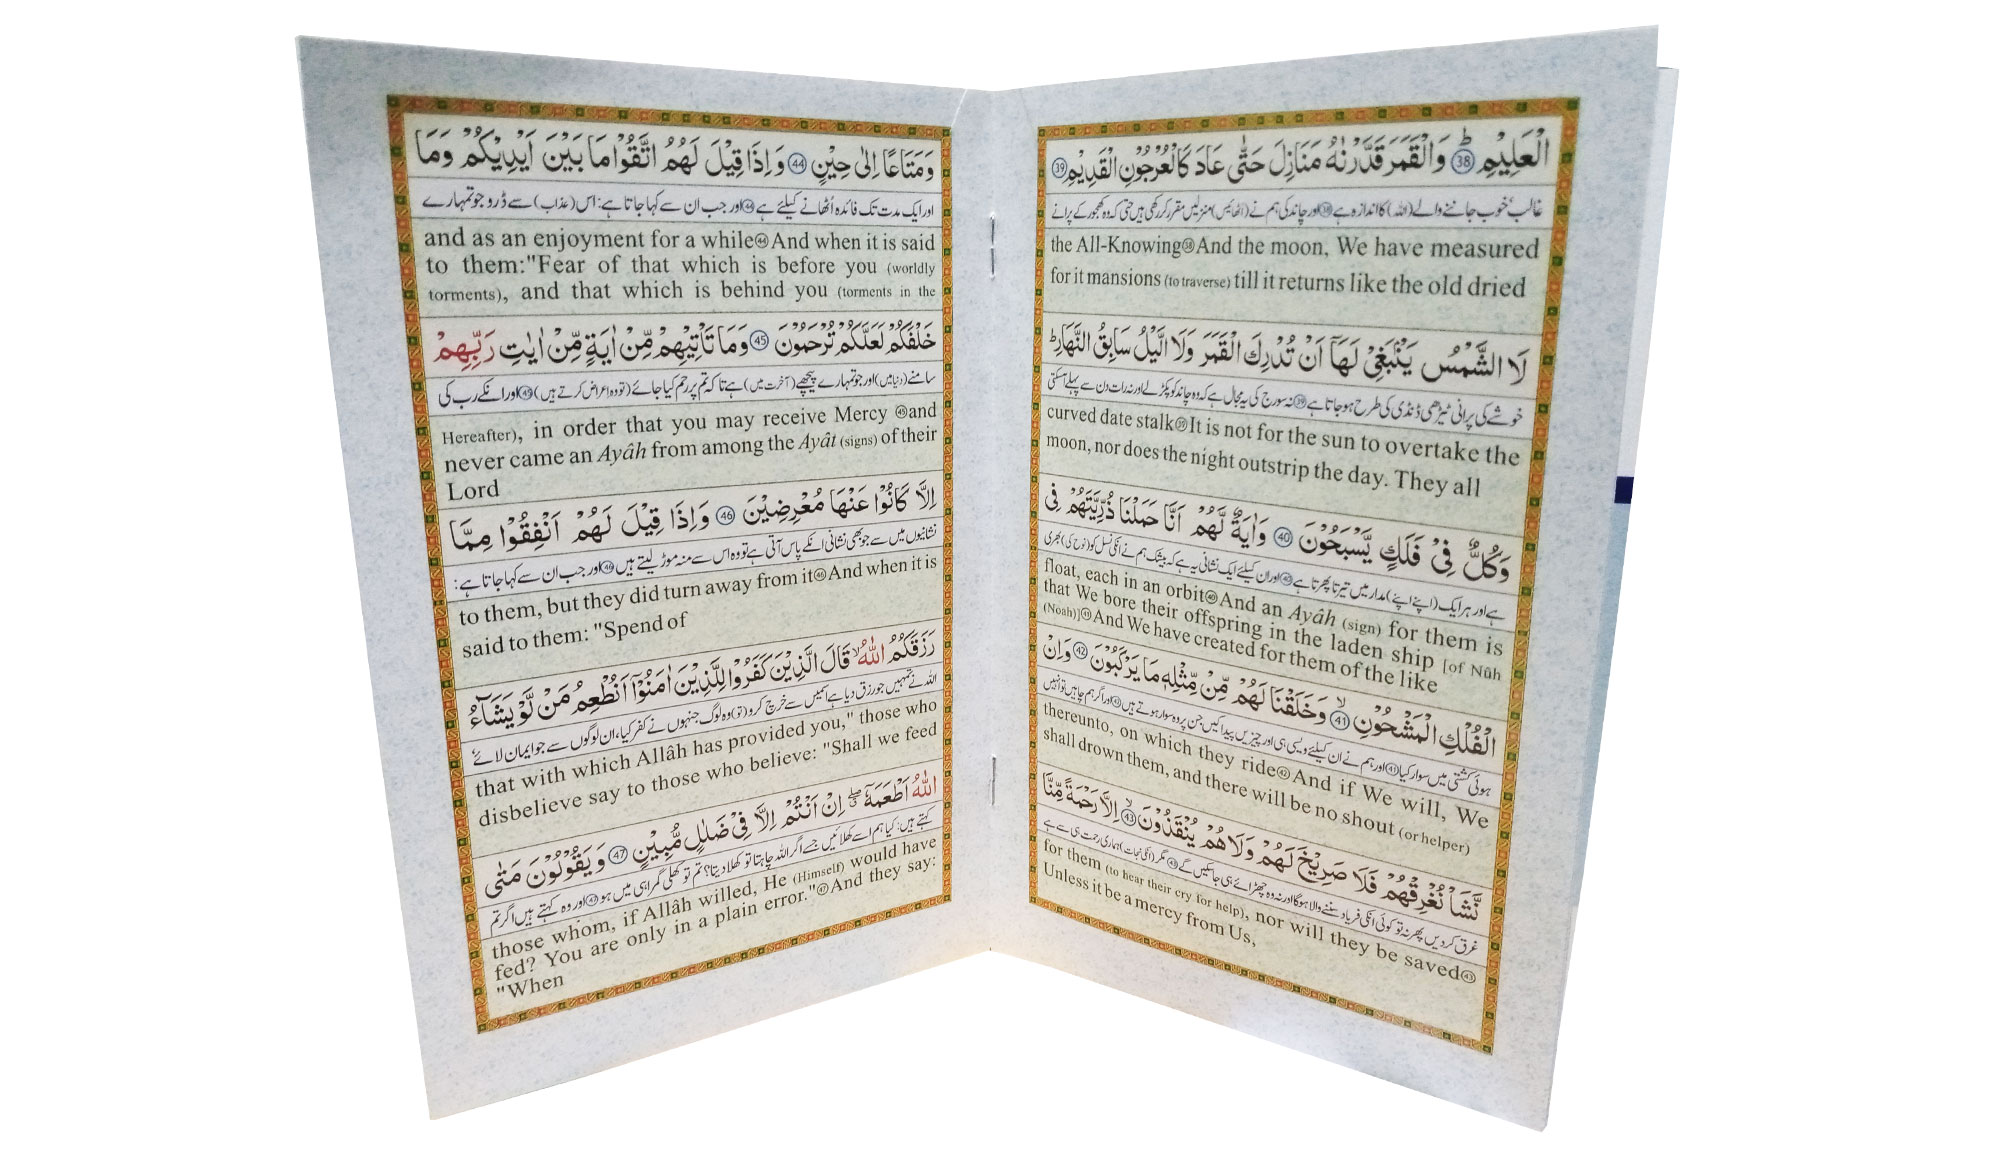 الْعَلِيْمِ ؕ 38 وَالْقَمَرَ قَدَّرْنٰهُ مَنَازِلَ حَتّٰى عَادَ كَالْعُرْجُوْنِ الْقَدِيْمِ 39
غالب، خوب جاننے والے (اللہ) کا اندازہ ہے 38 اور چاند کی ہم نے (اٹھائیس) منزلیں مقرر کر رکھی ہیں حتی کہ وہ کھجور کے پرانے
the All-Knowing 38 And the moon, We have measured
for it mansions (to traverse) till it returns like the old dried
لَا الشَّمْسُ يَنْۢبَغِىْ لَهَاۤ اَنْ تُدْرِكَ الْقَمَرَ وَلَا الَّيْلُ سَابِقُ النَّهَارِؕ
خوشے کی پرانی ٹیڑھی ڈنڈی کی طرح ہو جاتا ہے 39 نہ سورج کی یہ مجال ہے کہ وہ چاند کو پکڑ لے اور نہ رات دن سے پہلے آسکتی
curved date stalk 39 It is not for the sun to overtake the
moon, nor does the night outstrip the day. They all
وَكُلٌّ فِىْ فَلَكٍ يَّسْبَحُوْنَ 40 وَاٰيَةٌ لَّهُمْ اَنَّا حَمَلْنَا ذُرِّيَّتَهُمْ فِى
ہے اور ہر ایک (اپنے اپنے) مدار میں تیرتا پھرتا ہے 40 اور ان کیلئے ایک نشانی یہ ہے کہ بیشک ہم نے انکی نسل کو (نوح کی) بھری
float, each in an orbit 40 And an Ayâh (sign) for them is
that We bore their offspring in the laden ship [of Nûh
(Noah)] 41 And We have created for them of the like
الْفُلْكِ الْمَشْحُوْنِ ۙ 41 وَخَلَقْنَا لَهُمْ مِّنْ مِّثْلِهٖ مَا يَرْكَبُوْنَ 42 وَاِنْ
ہوئی کشتی میں سوار کیا 41 اور ہم نے ان کیلئے ویسی ہی اور چیزیں پیدا کیں جن پر وہ سوار ہوتے ہیں 42 اور اگر ہم چاہیں تو انہیں
thereunto, on which they ride 42 And if We will, We
shall drown them, and there will be no shout (or helper)
نَّشَاْ نُغْرِقْهُمْ فَلَا صَرِيْخَ لَهُمْ وَلَا هُمْ يُنْقَذُوْنَ ۙ 43 اِلَّا رَحْمَةً مِّنَّا
غرق کردیں پھر نہ تو کوئی انکی فریاد سننے والا ہوگا اور نہ وہ چھڑائے ہی جاسکیں گے 43 مگر (انکی نجات) ہماری رحمت ہی سے ہے
for them (to hear their cry for help), nor will they be saved 43
Unless it be a mercy from Us,
وَمَتَاعًا اِلٰى حِيْنٍ 44 وَاِذَا قِيْلَ لَهُمُ اتَّقُوْا مَا بَيْنَ اَيْدِيْكُمْ وَمَا
اور ایک مدت تک فائدہ اُٹھانے کیلئے ہے 44 اور جب ان سے کہا جاتا ہے: اس (عذاب) سے ڈرو جو تمہارے
and as an enjoyment for a while 44 And when it is said
to them:"Fear of that which is before you (worldly
torments), and that which is behind you (torments in the
خَلْفَكُمْ لَعَلَّكُمْ تُرْحَمُوْنَ 45 وَمَا تَاْتِيْهِمْ مِّنْ اٰيَةٍ مِّنْ اٰيٰتِ رَبِّهِمْ
سامنے (دنیا میں) اور جو تمہارے پیچھے (آخرت میں) ہے تاکہ تم پر رحم کیا جائے (تو وہ اعراض کرتے ہیں) 45 اور انکے رب کی
Hereafter), in order that you may receive Mercy 45 and
never came an Ayâh from among the Ayât (signs) of their
Lord
اِلَّا كَانُوْا عَنْهَا مُعْرِضِيْنَ 46 وَاِذَا قِيْلَ لَهُمْ اَنْفِقُوْا مِمَّا
نشانیوں میں سے جو بھی نشانی انکے پاس آتی ہے تو وہ اس سے منہ موڑ لیتے ہیں 46 اور جب ان سے کہا جاتا ہے:
to them, but they did turn away from it 46 And when it is
said to them: "Spend of
رَزَقَكُمُ اللّٰهُ ۙ قَالَ الَّذِيْنَ كَفَرُوْا لِلَّذِيْنَ اٰمَنُوْۤا اَنُطْعِمُ مَنْ لَّوْ يَشَآءُ
اللہ نے تمہیں جو رزق دیا ہے اسمیں سے خرچ کرو (تو) وہ لوگ جنہوں نے کفر کیا، ان لوگوں سے جو ایمان لائے
that with which Allâh has provided you," those who
disbelieve say to those who believe: "Shall we feed
اللّٰهُ اَطْعَمَهٗۤ ۖ اِنْ اَنْتُمْ اِلَّا فِىْ ضَلٰلٍ مُّبِيْنٍ 47 وَيَقُوْلُوْنَ مَتٰى
کہتے ہیں: کیا ہم اسے کھلائیں جسے اگر اللہ چاہتا تو کھلا دیتا؟ تم تو کھلی گمراہی میں ہو 47 اور وہ کہتے ہیں اگر تم
those whom, if Allâh willed, He (Himself) would have
fed? You are only in a plain error." 47 And they say:
"When